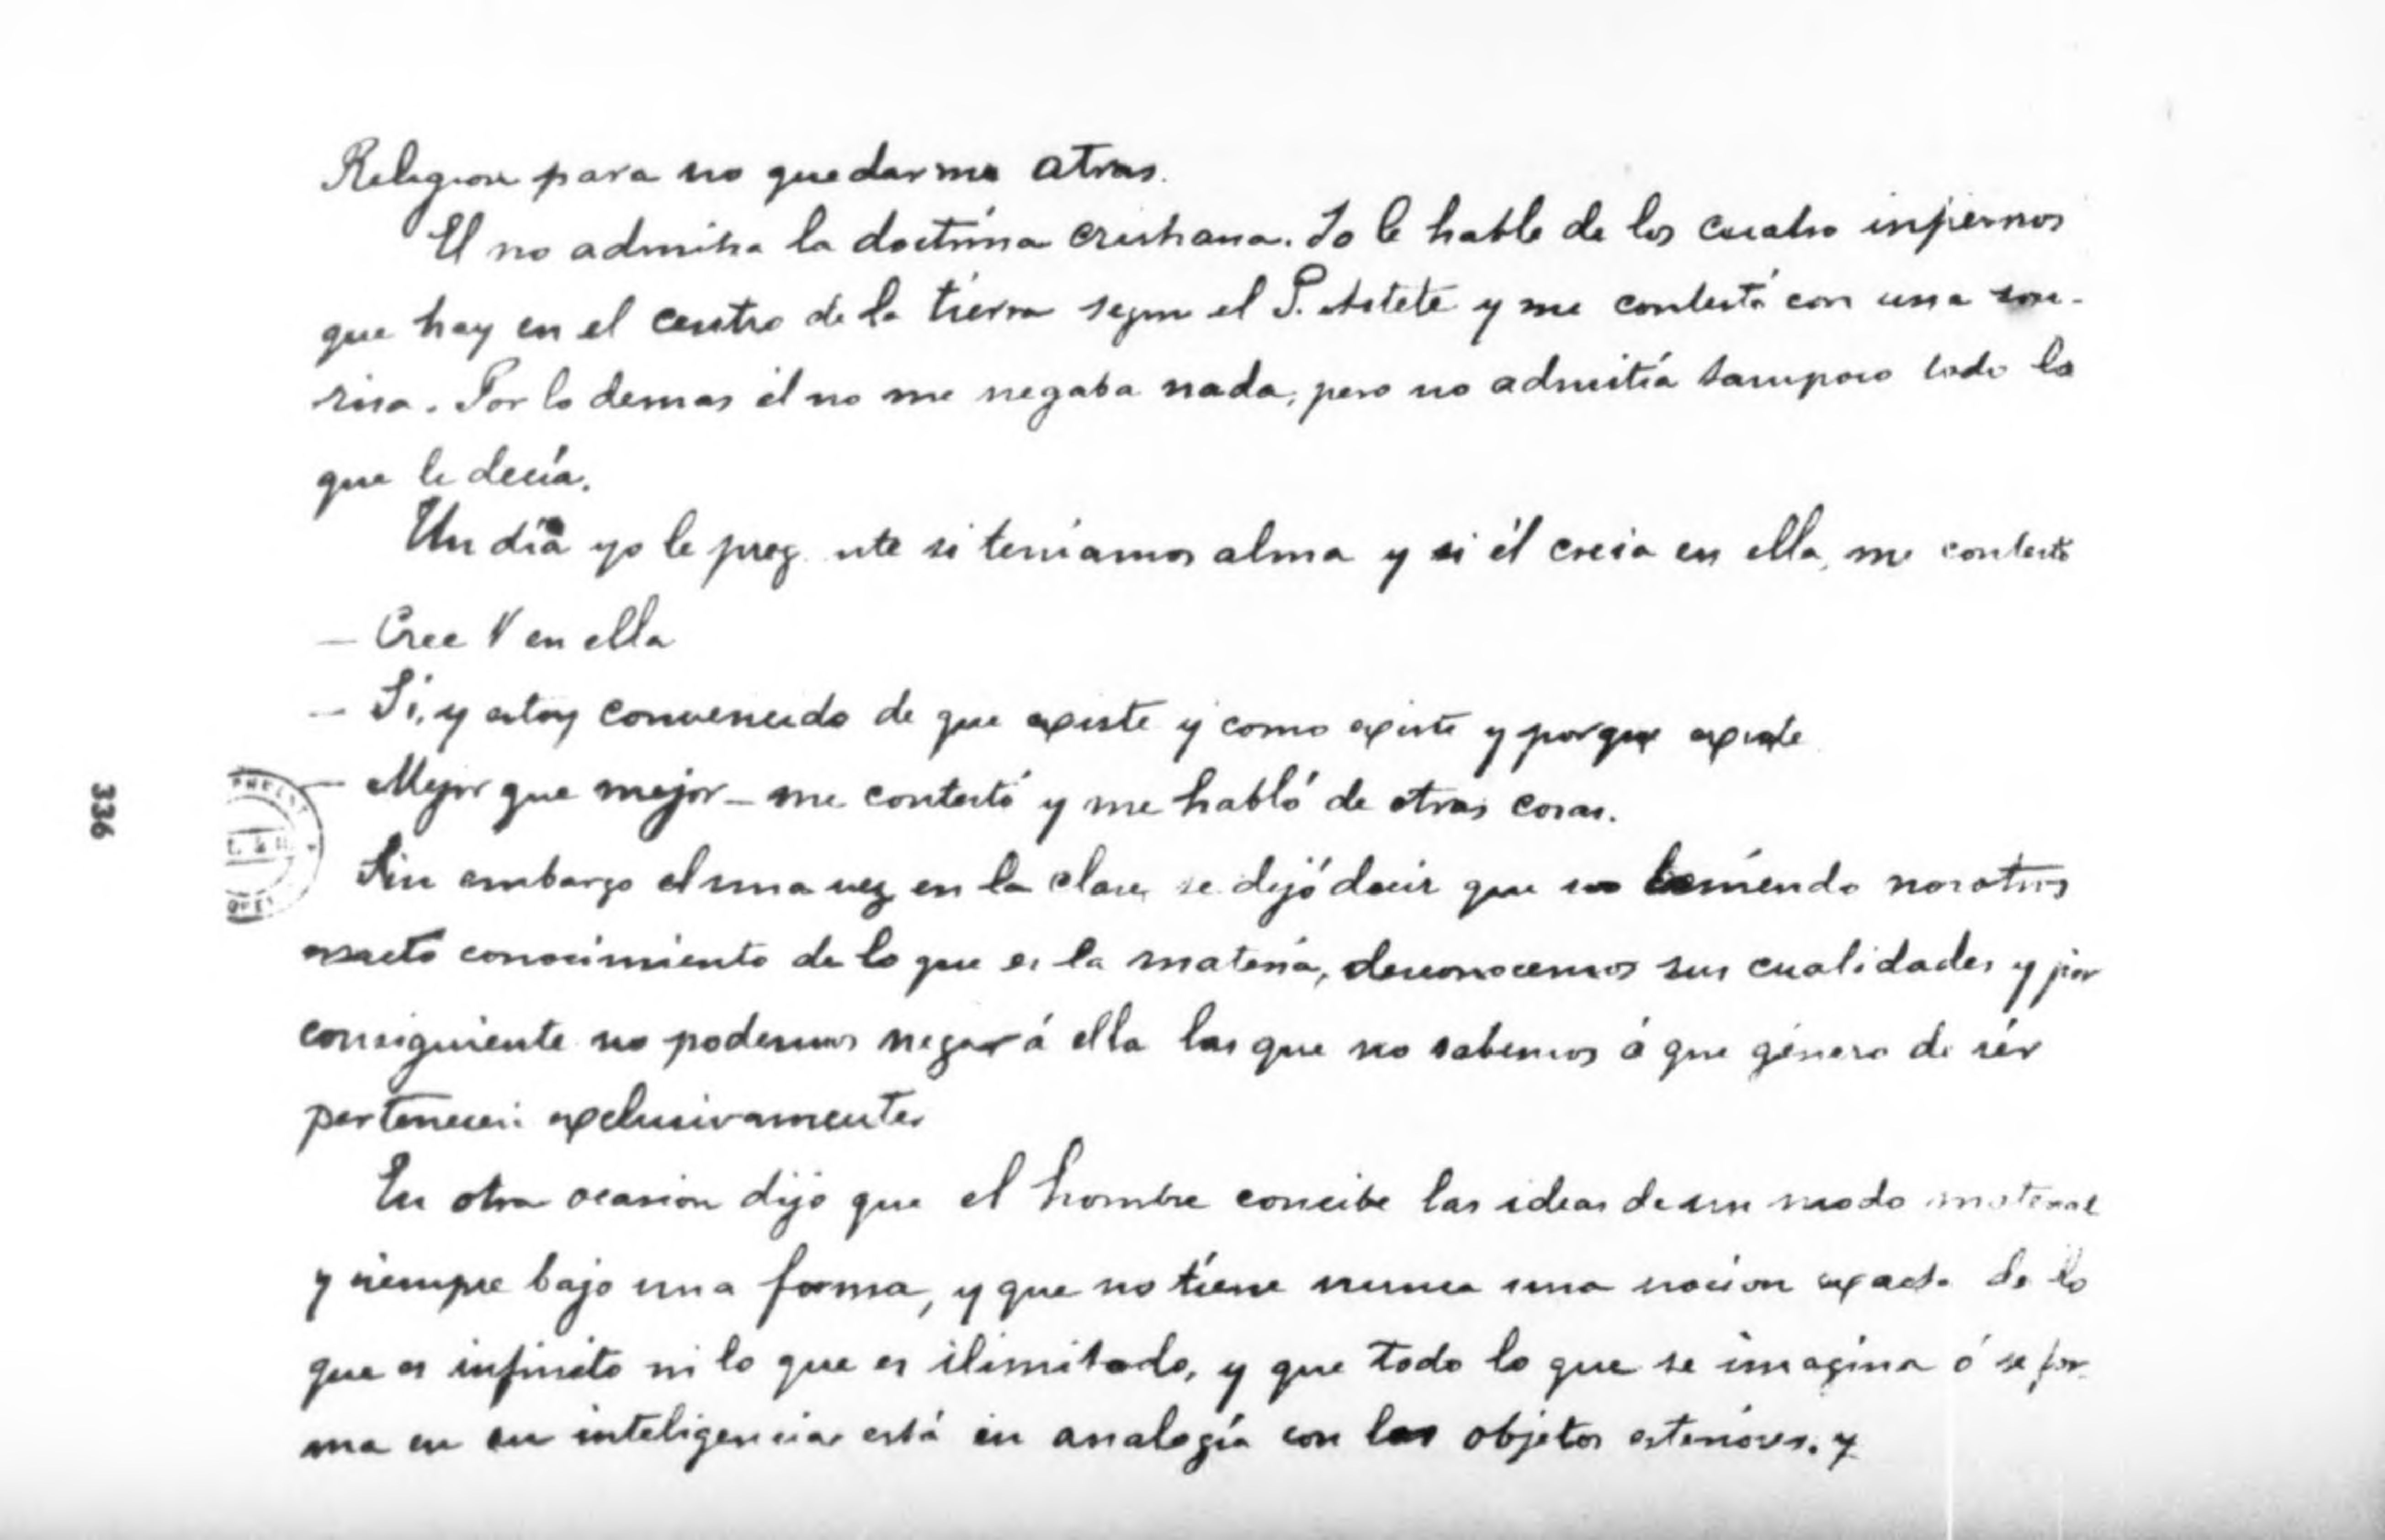 Religion para no quedarme atras.
El no admitia la doctrina cristiana. Yo le hable de los cuatro infiernos
que hay en el centro de la tierra segun el P. Astete y me contestó con una son-
risa. Por lo demas él no me negaba nada, pero no admitía tampoco todo lo
que le decía.
Un día yo le preg nte si teniamos alma y si él creia en ella, me contestó
— Cree V en ella
— Si, y estoy convencido de que existe y como existe y porque existe
— Mejor que mejor — me contestó y me habló de otras cosas.
Sin embargo el una vez en la clase, se dejó decir que no teniendo nosotros
exacto conocimiento de lo que es la materia, desconocemos sus cualidades y por
consiguiente no podemos negar á ella las que no sabemos á que género de sér
pertenecen exclusivamente.
En otra ocasion dijo que el hombre concibe las ideas de un modo material
y siempre bajo una forma, y que no tiene nunca una nocion exacta de lo
que es infinito ni lo que es ilimitado, y que todo lo que se imagina ó se for-
ma en su inteligencia está en analogía con los objetos esteriores. y
336